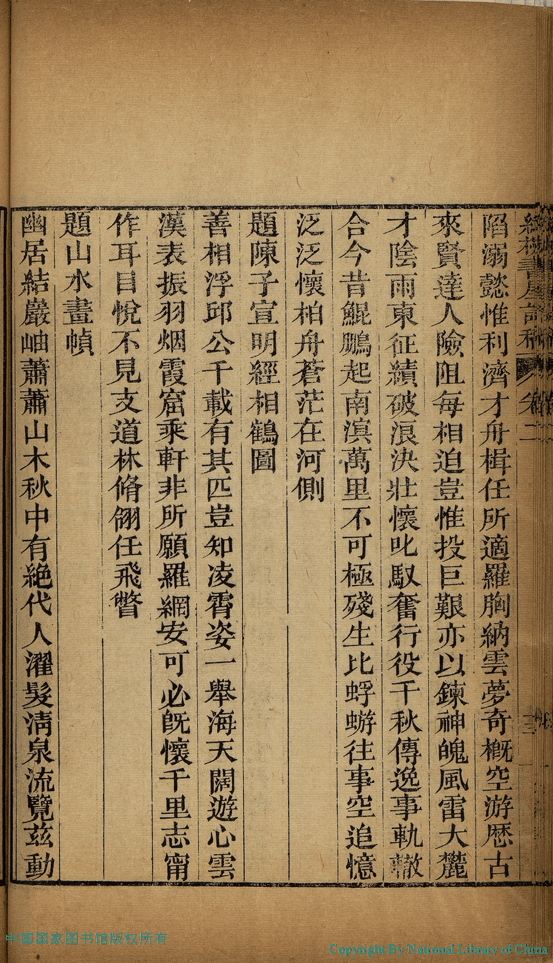 陷溺懿惟利濟才舟楫任所適羅胸納雲夢奇概空游歷古
來賢達人險阻每相迫豈惟投巨艱亦以鍊神魄風雷大麓
才陰雨東征績破浪決壯懷叱馭奮行役千秋傳逸事軌轍
合今昔鯤鵬起南溟萬里不可極殘生比蜉蝣往事空追憶
泛泛懷柏舟蒼茫在河側
題陳子宣明經相鶴圖
善相浮邱公千載有其匹豈知凌霄姿一舉海天闊遊心雲
漢表振羽烟霞窟乘軒非所願羅網安可必旣懷千里志甯
作耳目悅不見支道林脩翎任飛瞥
題山水畫幀
幽居結巖岫蕭蕭山木秋中有絶代人濯髮淸泉流覽茲動
卷二
中国国家图书馆版权所有
Copyright By National Library of China